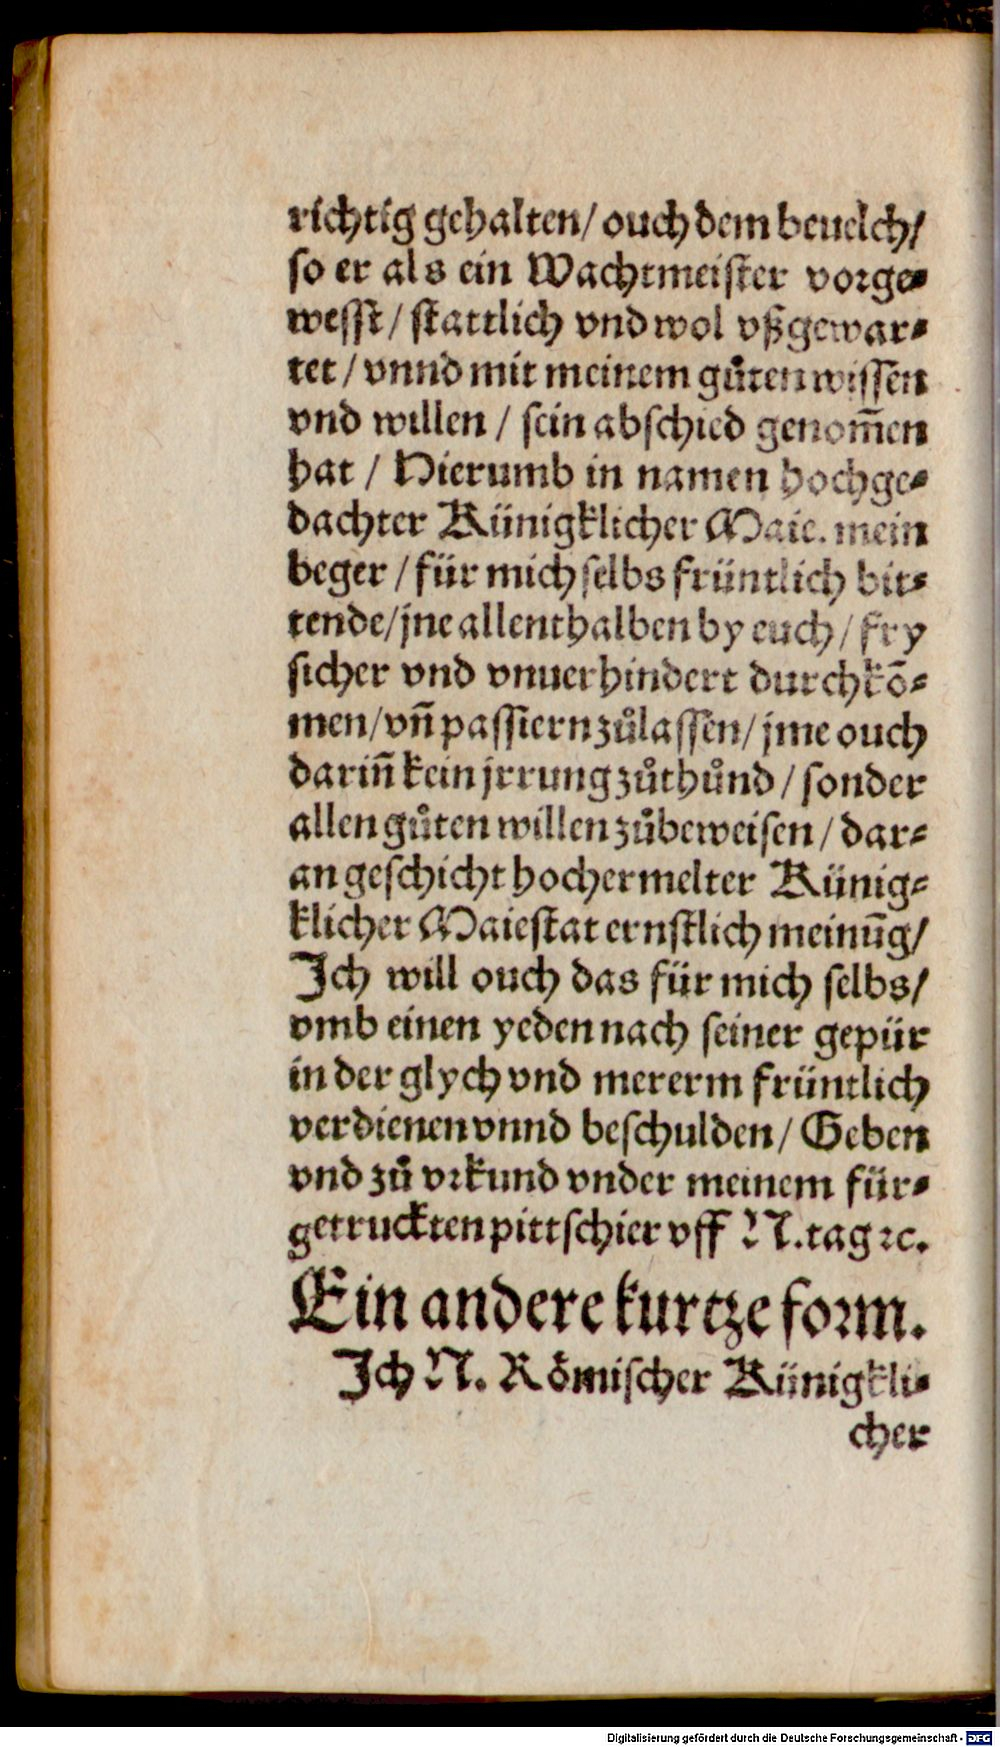 richtig gehalten/ ouch dem beuelch/
so er als ein Wachtmeister vorge⸗
wesst/ stattlich vnd wol vßgewar⸗
tet/ vnnd mit meinem guͦten wissen
vnd willen/ sein abschied genom̄en
hat/ Hierumb in namen hochge⸗
dachter Künigklicher Maie. mein
beger/ für mich selbs früntlich bit⸗
tende/ jne allenthalben by euch/ fry
sicher vnd vnuerhindert durchkō⸗
men/ vn̄ passiern zuͦlassen/ jme ouch
darin̄ kein jrrung zuͦthuͦnd/ sonder
allen guͦten willen zuͦbeweisen/ dar⸗
an geschicht hochermelter Künig⸗
klicher Maiestat ernstlich meinūg/
Ich will ouch das für mich selbs/
vmb einen yeden nach seiner gepür
in der glych vnd mererm früntlich
verdienen vnnd beschulden/ Geben
vnd zuͦ vrkund vnder meinem für⸗
getruckten pittschier vff N. tag ꝛc.
Ein andere kurtze form.
Ich N. Römischer Künigkli⸗
cher
Digitalisierung gefördert durch die Deutsche Forschungsgemeinschaft - DFG